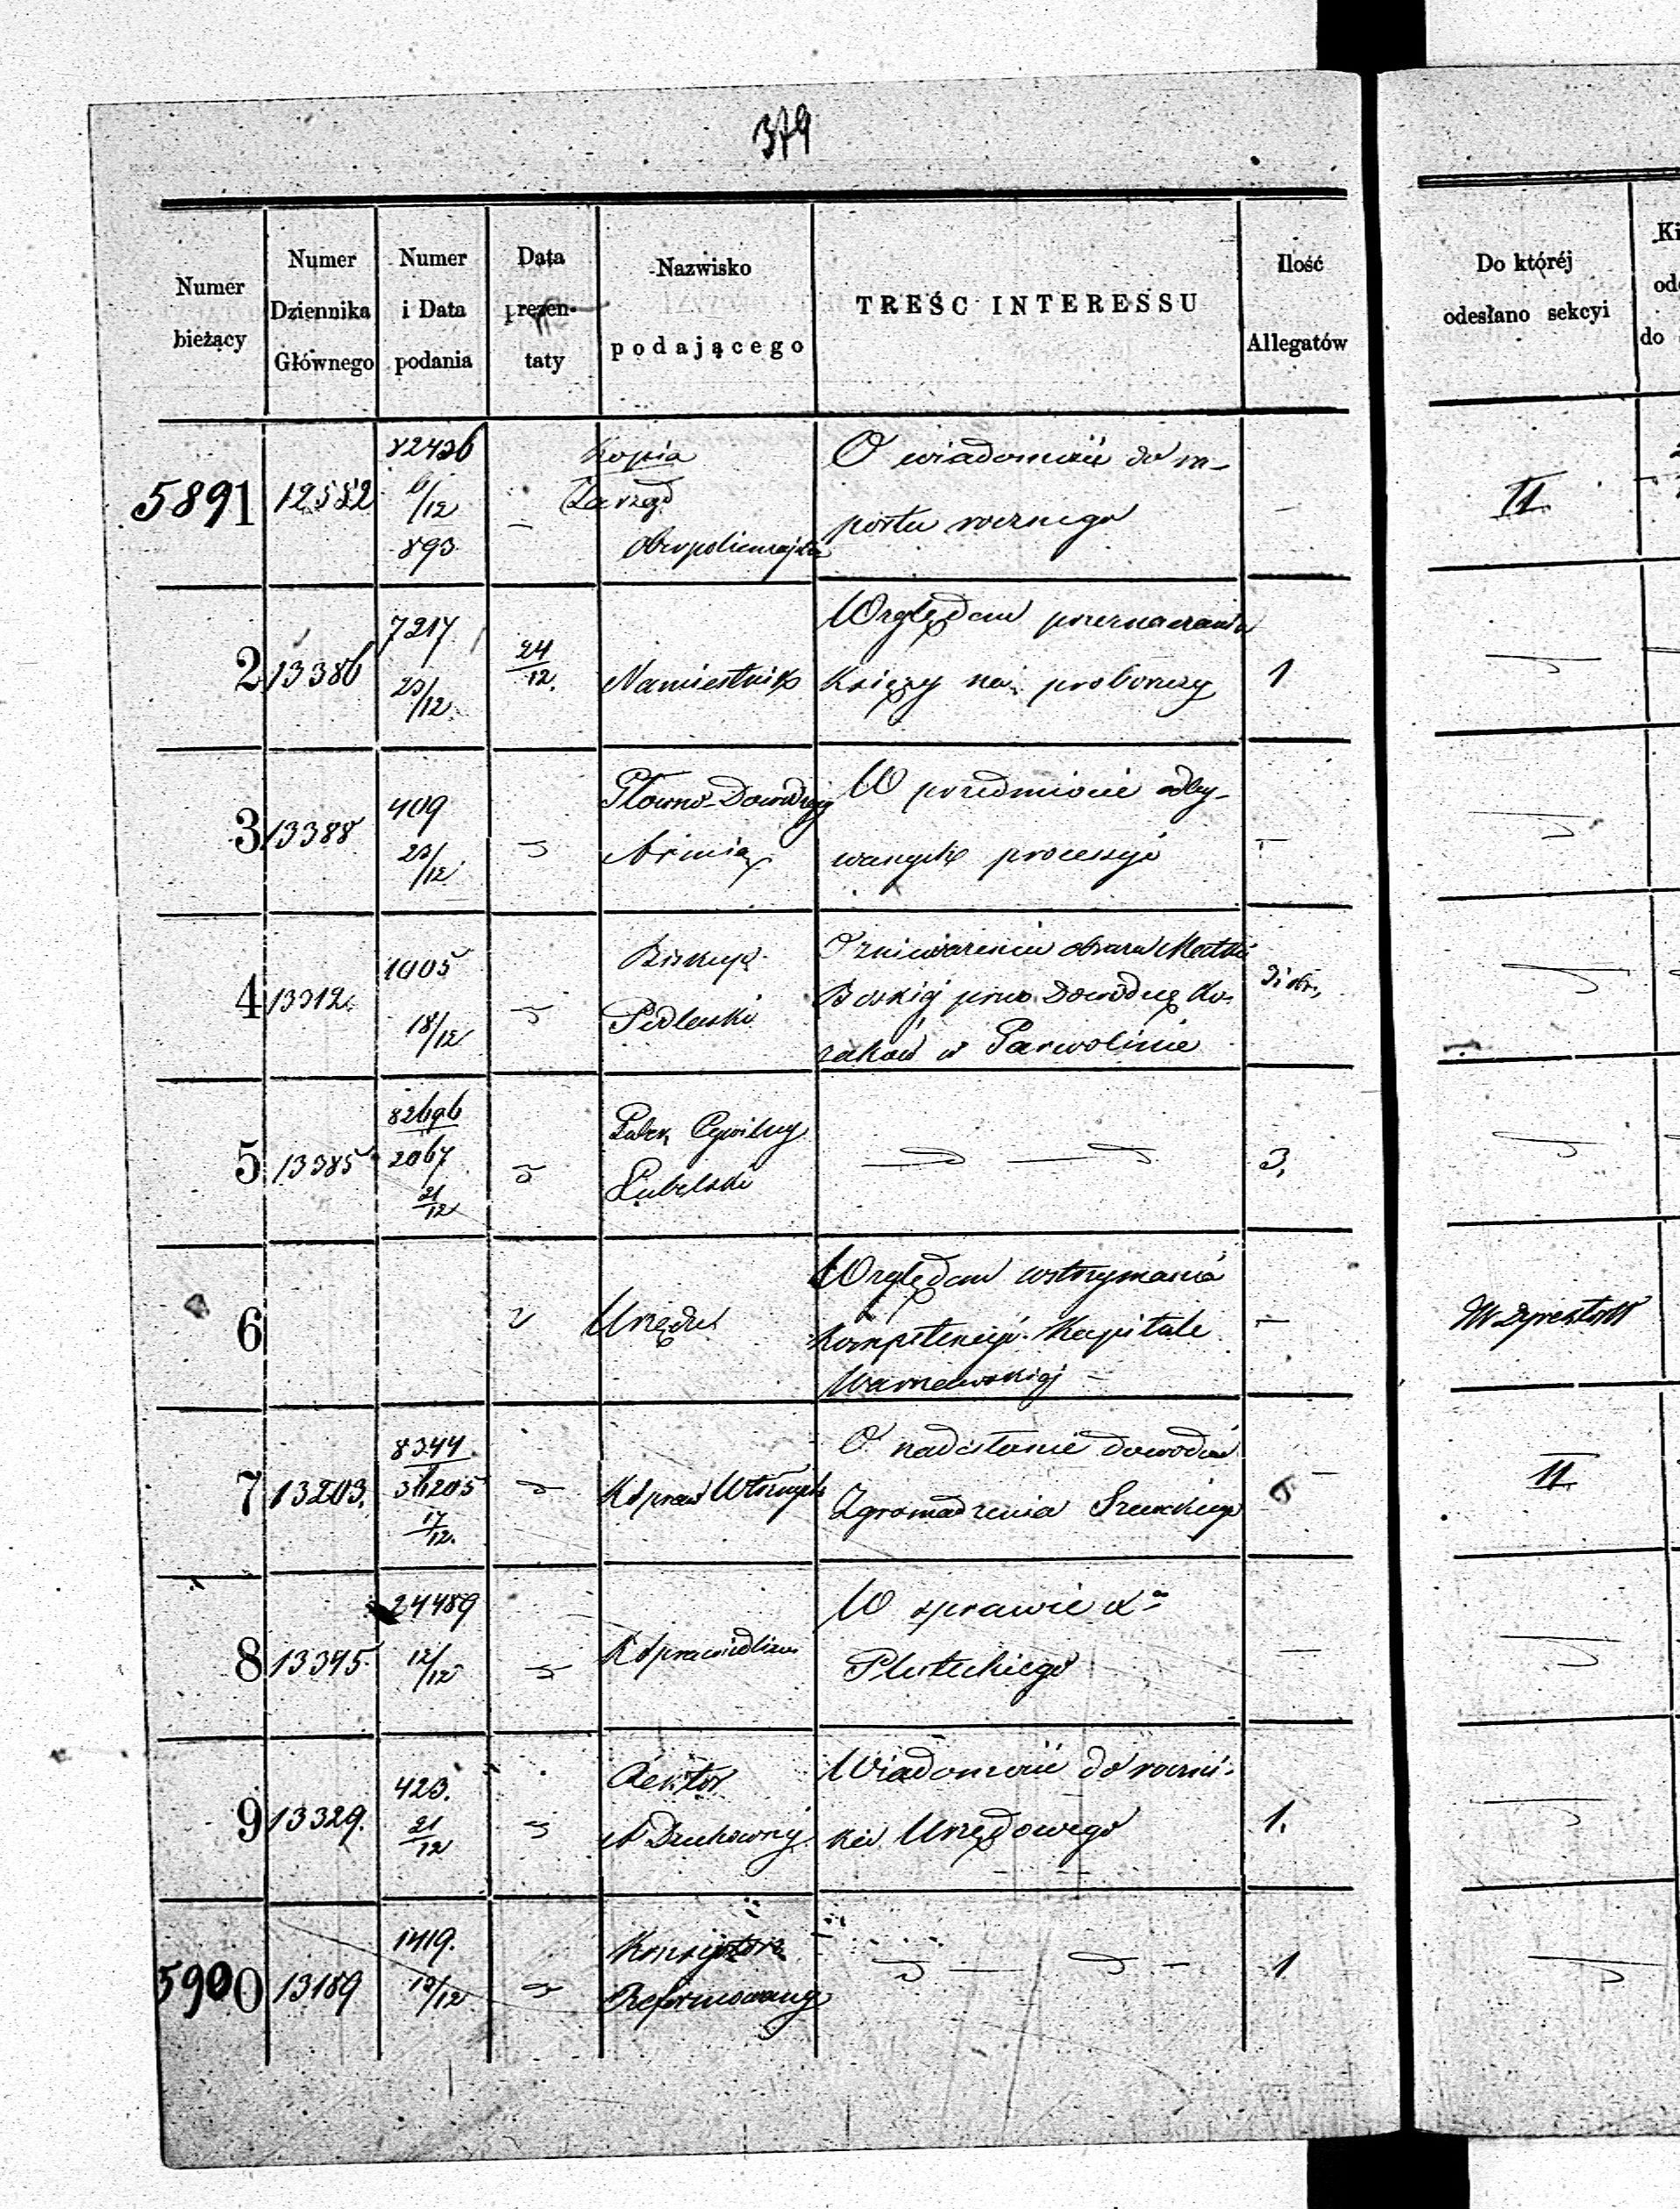 379
Numer bieżący
Numer Dziennika Głównego
Numer i Data podania
Data prezen- taty
Nazwisko podającego
TREŚC INTERESSU
Ilość Allegatów
Do któréj odesłano sekcyi
Ki
od
do
5891 12552 82426 6/12 893 Kopia Zarząd Oberpolicmajstra
O wiadomość do ra-
portu rocznego
—
II.
2 13386 7217 23/12 24/12. Namiestnik
Względem przeznaczania
Księży na proboszczy
1
3 13388 409 23/12 Główno-Dowodzący Armią
W przedmiocie odby-
wanych processyi
—
4 13312. 1005 18/12 Biskup Podlaski
O znieważeniu obrazu Matki
Boskiej przez Dowódcę Ko-
zaków w Parwolinie
5 13385 82696 2067 21/12 Cywilny Lubelski
3.
6 Urzędu
Względem wstrzymania
kompetencyi Kapitule
Warszawskiej
—
7 13203. 8344 36205 17/12.
O nadesłanie dowodów
Zgromadzenia
—
II
8 13345. 24489 12/12 K Sprawiedliw.
W sprawie Xa
Pluteckiego
—
9 13329. 423. 21/12 Rektor A Duchownej
Wiadomość do roczni-
ka Urzędowego
1.
5900 13189 1419. 19/12 Konsystorz Reformowany
1